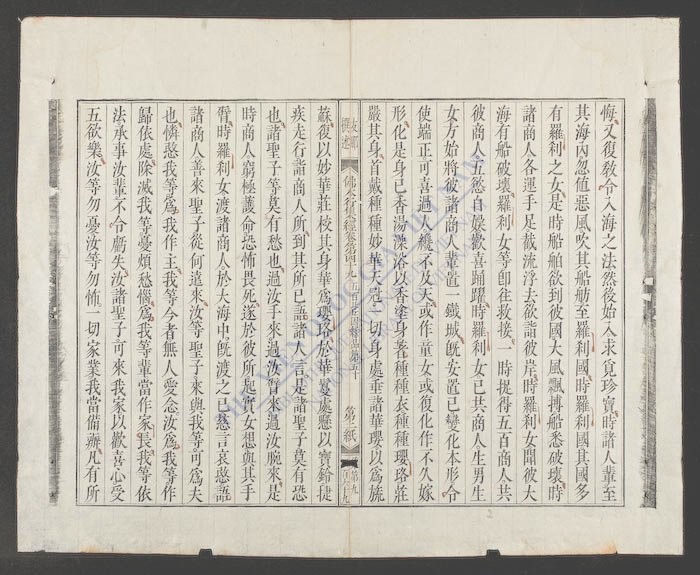 悔又復敎令入海之法然後始入求覓珍寶時諸人輩至
其海內忽值惡風吹其船舫至羅刹國時羅刹國其國多
有羅刹之女是時船舶欲到彼國大風飄搏船悉破壞時
諸商人各運手足截流浮去欲詣彼岸時羅刹女聞彼大
海有船破壞羅刹女等卽往救接一時捉得五百商人共
彼商人五慾自娛歡喜踊躍時羅刹女已共商人生男生
女方始將彼諸商人輩置一鐵城旣安置已變化本形令
使端正可喜過人纔不及天或作童女或復化作不久嫁
形化是身已香湯澡浴以香塗身著種種衣種種瓔珞莊
嚴其身首戴種種妙華天冠一切身處垂諸華瓔以爲旒
佛本行集經卷第四十九 五百比丘因緣品第五十 第三紙
蘇復以妙華莊校其身華爲瓔珞於華鬘處懸以寶鈴揵
疾走行詣商人所到其所已語諸人言是諸聖子莫有恐
也諸聖子等莫有愁也過汝手來過汝臂來過汝腕來是
時商人窮極護命恐怖畏死遂於彼所起實女想與其手
臂時羅刹女渡諸商人於大海中旣渡之已慈言哀愍語
諸商人善來聖子從何遠來汝等聖子來與我等可爲夫
也憐愍我等爲我作主我等今者無人愛念汝爲我等作
歸依處除滅我等憂煩愁惱爲我等輩當作家長我等依
法承事汝輩不令虧失汝諸聖子可來我家以歡喜心受
五欲樂汝等勿憂汝等勿怖一切家業我當備辦凡有所